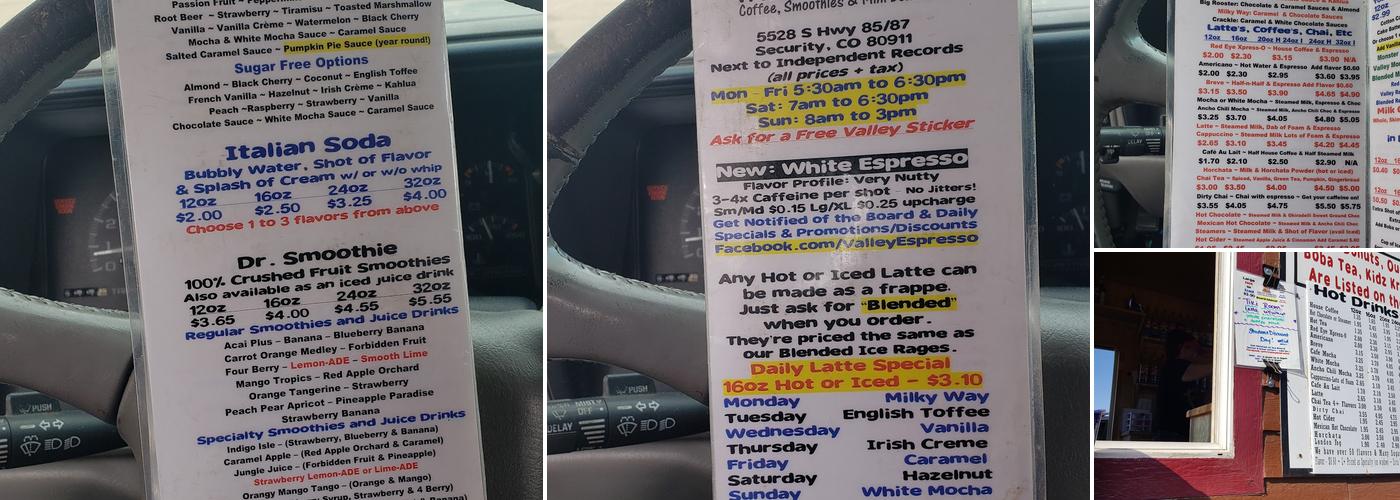 Root Beer ~ Strawberry ~ Tiramisu ~ Toasted Marshmallow
Vanilla ~ Vanilla Crème ~ Watermelon ~ Black Cherry
Mocha & White Mocha Sauce ~ Caramel Sauce
Salted Caramel Sauce ~ Pumpkin Pie Sauce (year round!)
Sugar Free Options
Almond ~ Black Cherry ~ Coconut ~ English Toffee
French Vanilla ~ Hazelnut ~ Irish Crème ~ Kahlua
Peach ~Raspberry ~ Strawberry ~ Vanilla
Chocolate Sauce ~ White Mocha Sauce ~ Caramel Sauce
Italian Soda
Bubbly Water, Shot of Flavor
& Splash of Cream w/ or w/o whip
12oz 16oz 24oz 32oz
$2.00 $2.50 $3.25 $4.00
Choose 1 to 3 flavors from above
Dr. Smoothie
100% Crushed Fruit Smoothies
Also available as an iced juice drink
12oz 16oz 24oz 32oz
$3.65 $4.00 $4.55 $5.55
Regular Smoothies and Juice Drinks
Acai Plus – Banana – Blueberry Banana
Carrot Orange Medley – Forbidden Fruit
Four Berry – Lemon-ADE – Smooth Lime
Mango Tropics – Red Apple Orchard
Orange Tangerine – Strawberry
Peach Pear Apricot – Pineapple Paradise
Strawberry Banana
Specialty Smoothies and Juice Drinks
Indigo Isle – (Strawberry, Blueberry & Banana)
Caramel Apple – (Red Apple Orchard & Caramel)
Jungle Juice – (Forbidden Fruit & Pineapple)
Strawberry Lemon-ADE or Lime-ADE
Orangy Mango Tango – (Orange & Mango)
Syrup, Strawberry & 4 Berry)
PUSH
Coffee, Smoothies &
5528 S Hwy 85/87
Security, CO 80911
Next to Independent Records
(all prices + tax)
Mon - Fri 5:30am to 6:30pm
Sat: 7am to 6:30pm
Sun: 8am to 3pm
Ask for a Free Valley Sticker
New: White Espresso
Flavor Profile: Very Nutty
3-4x Caffeine per shot - No Jitters!
Sm/Md $0.15 Lg/XL $0.25 upcharge
Get Notified of the Board & Daily
Specials & Promotions/Discounts
Facebook.com/ValleyEspresso
Any Hot or Iced Latte can
be made as a frappe.
Just ask for "Blended"
when you order.
They're priced the same as
our Blended Ice Rages.
Daily Latte Special
16oz Hot or Iced – $3.10
Monday Milky Way
Tuesday English Toffee
Wednesday Vanilla
Thursday Irish Creme
Friday Caramel
Saturday Hazelnut
Sunday White Mocha
DELAY
PUSH
Big Rooster: Chocolate & Caramel Sauces & Almond
Milky Way: Caramel & Chocolate Sauces
Crackle: Caramel & White Chocolate Sauces
Latte's, Coffee's, Chai, Etc
12oz 16oz 20oz H 24oz I 24oz H 32oz I
Red Eye Xpreso-O ~ House Coffee & Espresso
$2.00 $2.30 $2.95 $3.15 $3.90 N/A
Americano ~ Hot Water & Espresso Add flavor $0.60
$2.00 $2.30 $2.95 $3.60 $3.95
Breve ~ Half-n-Half & Espresso Add Flavor $0.60
$3.15 $3.50 $3.90 $4.65 $4.90
Mocha or White Mocha ~ Steamed Milk, Espresso & Choc
Ancho Chili Mocha ~ Steamed Milk, Ancho Chili Choc & Espresso
$3.25 $3.70 $4.05 $4.80 $5.05
Latte ~ Steamed Milk, Dab of Foam & Espresso
Cappuccino ~ Steamed Milk Lots of Foam & Espresso
$2.65 $3.10 $3.45 $4.20 $4.45
Café Au Lait ~ Half House Coffee & Half Steamed Milk
$1.70 $2.10 $2.50 $2.90 N/A
Horchata ~ Milk & Horchata Powder (hot or iced)
Chai Tea ~ Spiced, Vanilla, Green Tea, Pumpkin, Gingerbread
$3.00 $3.50 $4.00 $4.50 $5.00
Dirty Chai ~ Chai with espresso ~ Get your caffeine on!
$3.55 $4.05 $4.75 $5.50 $5.75
Hot Chocolate ~ Steamed Milk & Ghiradelli Sweet Ground Choc
Mexican Hot Chocolate ~ Steamed Milk & Ancho Chili Choc
Steamers ~ Steamed Milk & Shot of Flavor (avail iced)
Hot Cider ~ Steamed Apple Juice & Cinnamon
DELAY
$2.99
Boba Tea, Kidz
Are Listed on
Hot Drinks
House Coffee
Hot Tea
Americano
Breve
Cafe Mocha
White Mocha
Ancho Chili Mocha
Cafe Au Lait
Latte
Dirty Chai
Hot Cider
Mexican Hot Chocolate
Horchata
London Fog